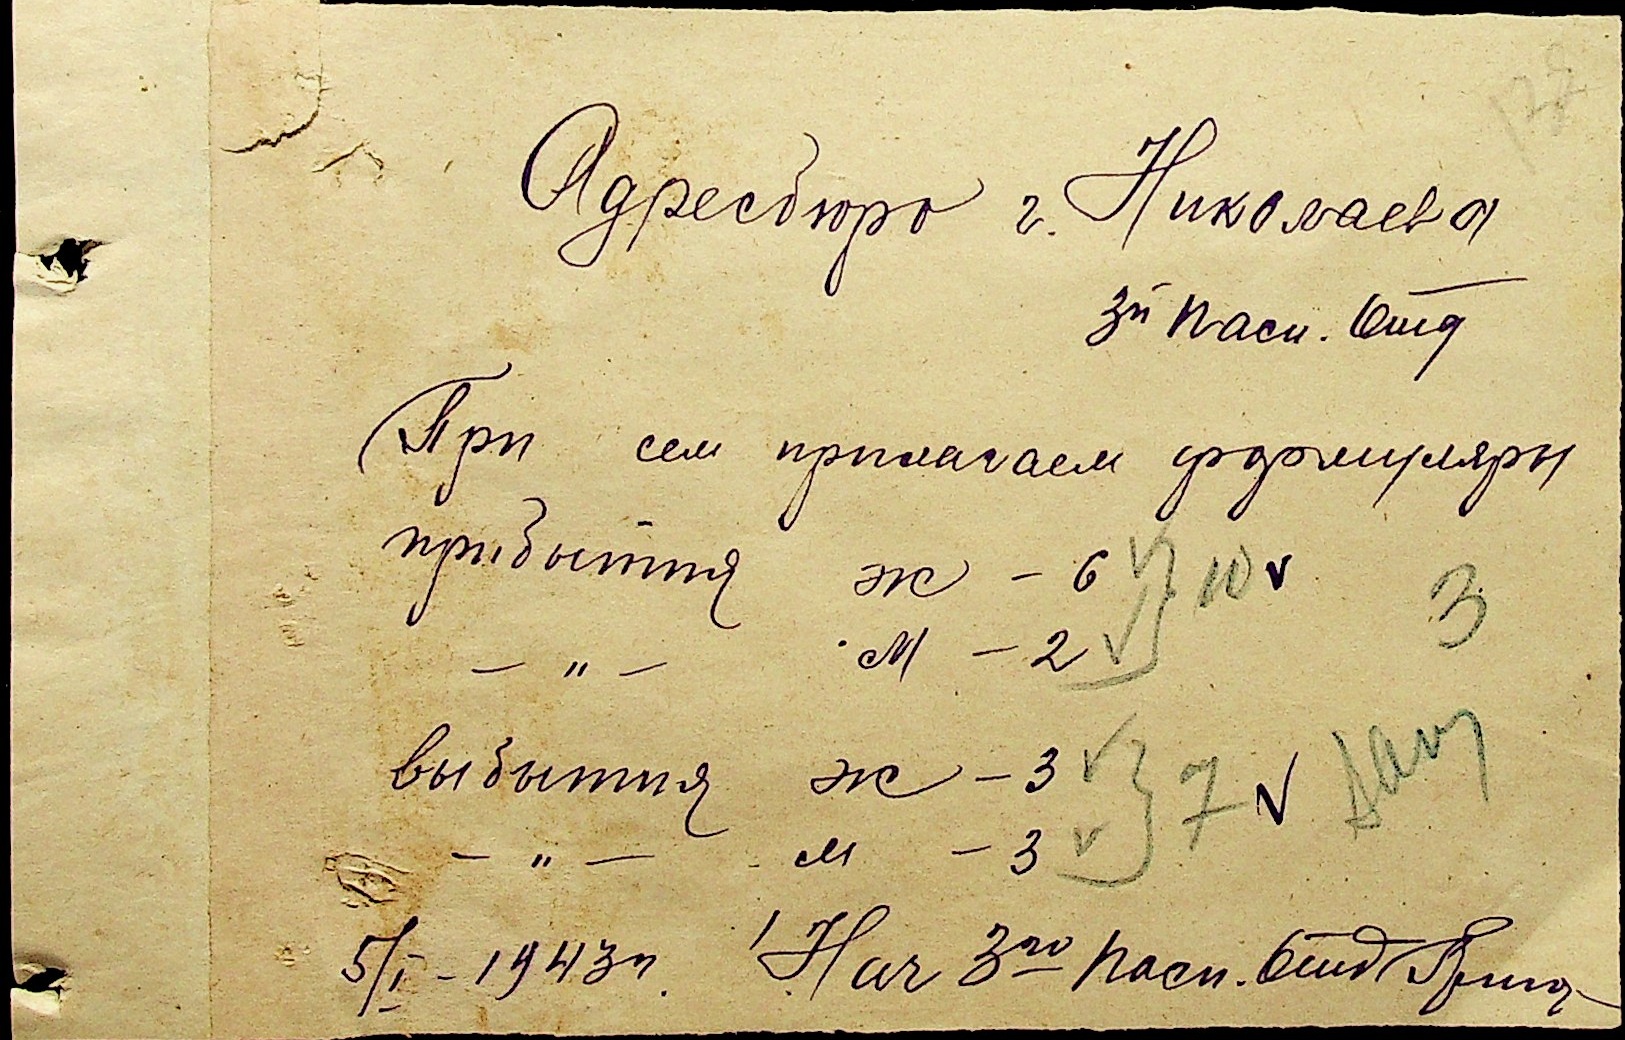 Адресбюро г. Николаева
3й Пасп. Отд
При сем прилагаем формуляры
прибытия ж – 6 ✓ } 10 ✓
3
– " – м – 2 ✓
выбытия ж – 3 ✓ } 7 ✓
– " – м – 3 ✓
5/I – 1943 г. Нач 3го Пасп. Отд